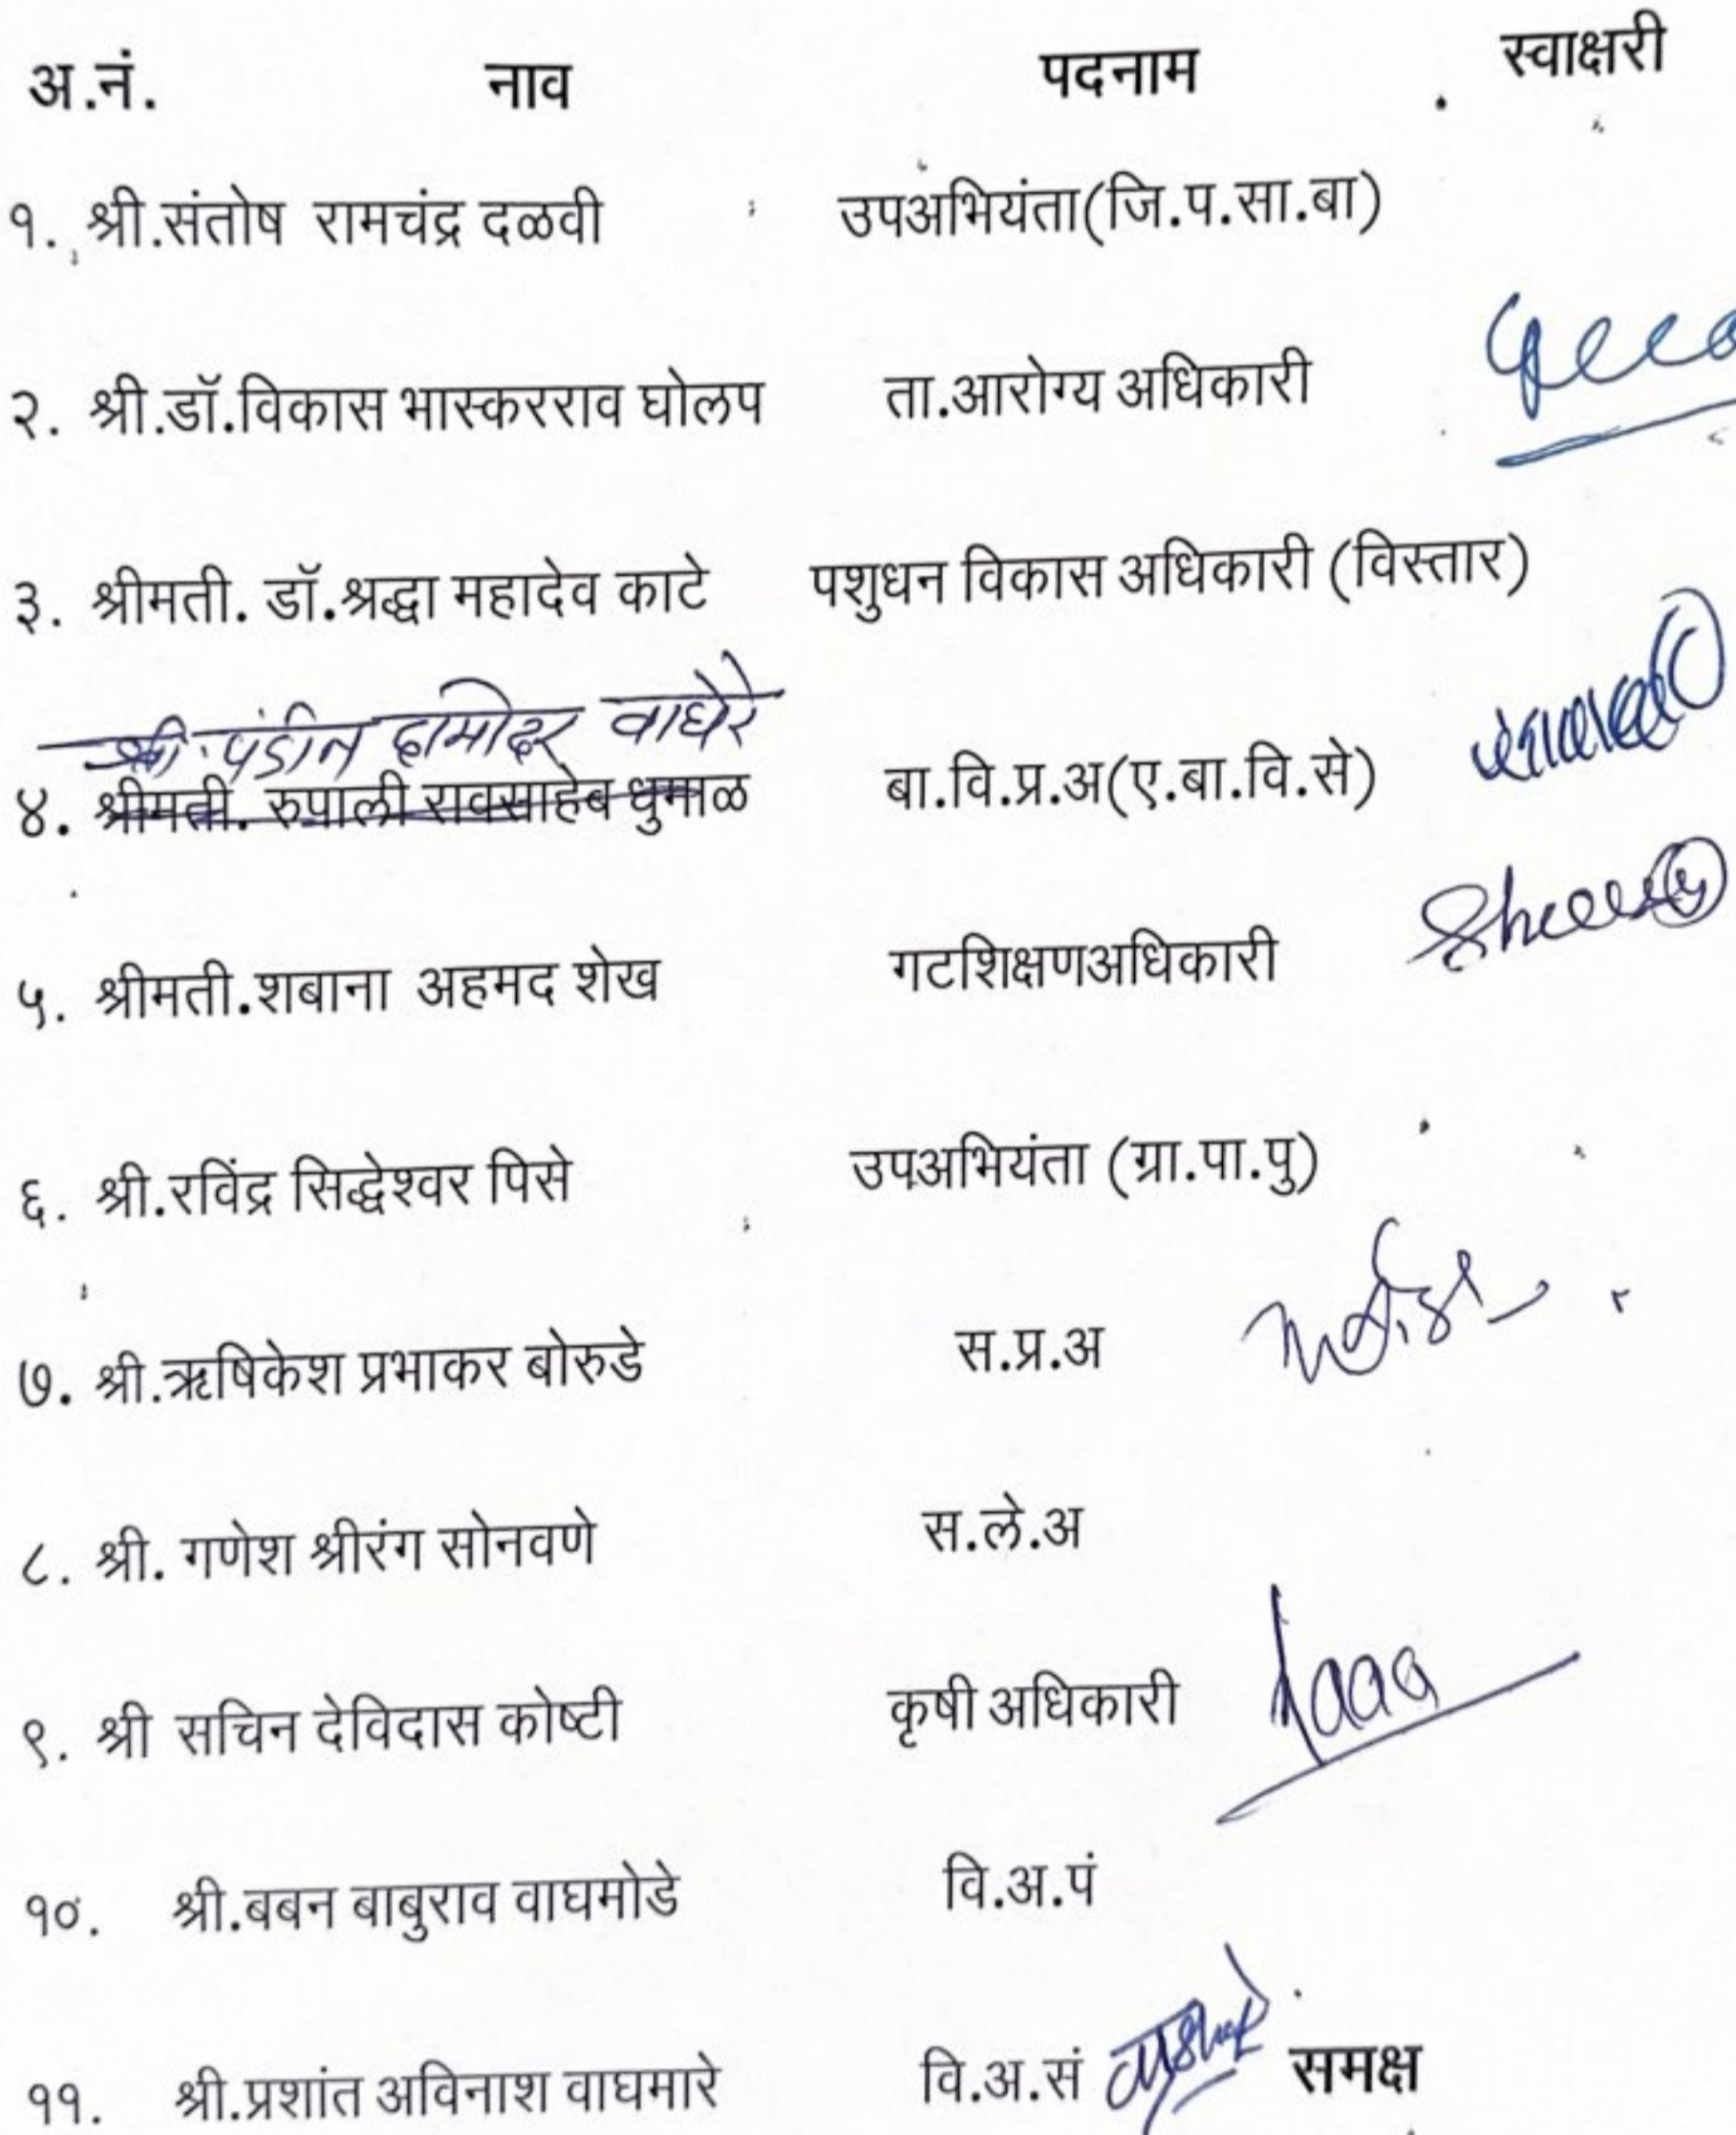 अ.नं. नाव पदनाम स्वाक्षरी
१. श्री.संतोष रामचंद्र दळवी उपअभियंता(जि.प.सा.बा)
२. श्री.डॉ.विकास भास्करराव घोलप ता.आरोग्य अधिकारी
३. श्रीमती. डॉ.श्रद्धा महादेव काटे पशुधन विकास अधिकारी (विस्तार)
श्री. पंडीत दामोदर वाघेरे
४. श्रीमती. रुपाली रावसाहेब धुमाळ बा.वि.प्र.अ(ए.बा.वि.से)
५. श्रीमती.शबाना अहमद शेख गटशिक्षणअधिकारी
६. श्री.रविंद्र सिद्धेश्वर पिसे उपअभियंता (ग्रा.पा.पु)
७. श्री.ऋषिकेश प्रभाकर बोरुडे स.प्र.अ
८. श्री. गणेश श्रीरंग सोनवणे स.ले.अ
९. श्री सचिन देविदास कोष्टी कृषी अधिकारी
१०. श्री.बबन बाबुराव वाघमोडे वि.अ.पं
११. श्री.प्रशांत अविनाश वाघमारे वि.अ.सं समक्ष